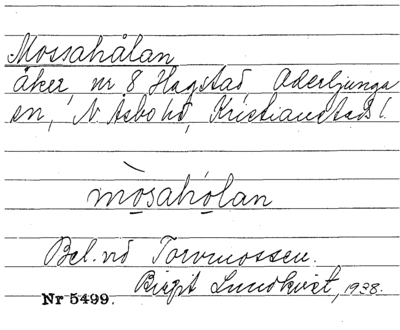 Mossahålan
åker, nr 8 Hagstad Oderljunga
sn, N. Åsbo hd, Kristianstads l.
mòsahólan
Bel. vid Torvmossen.
Birgit Lundkvist, 1938.
Nr 5499.